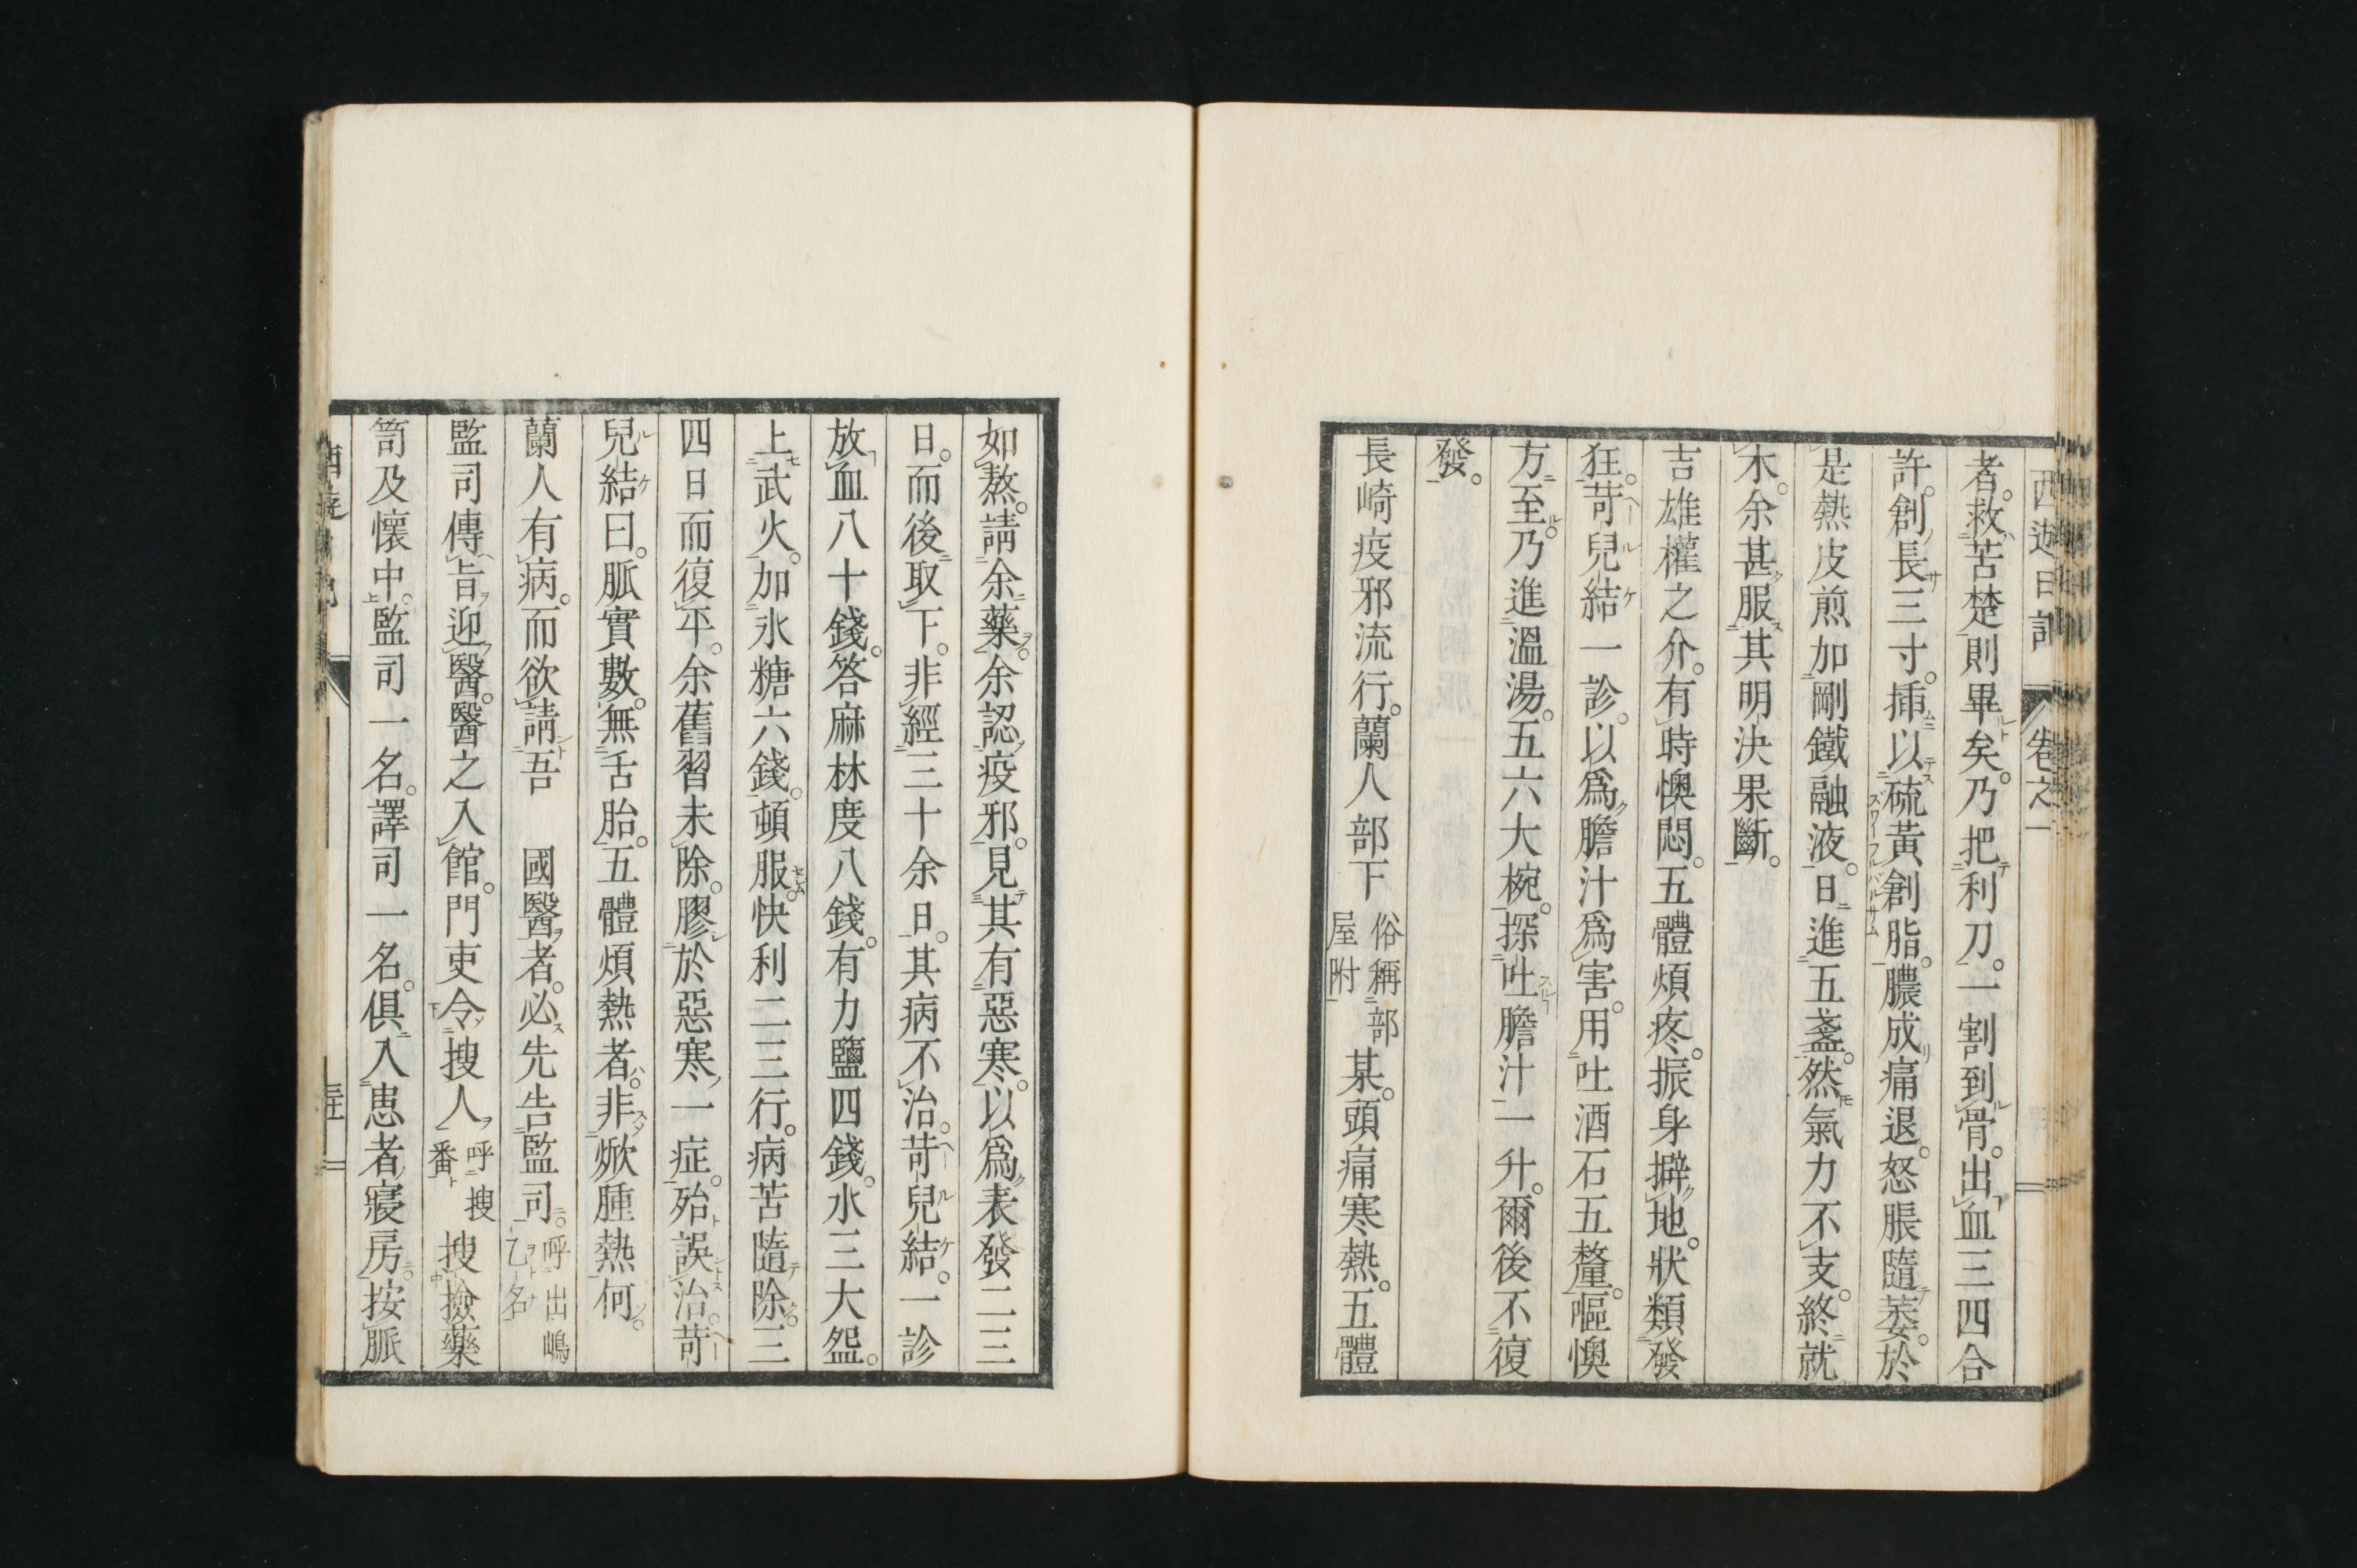 西遊日記 卷之一
者。救苦楚則畢矣。乃把利刀。一割到骨。出血三四合
許。創長三寸。插以硫黃創脂。膿成痛退。怒脹隨萎。於
是熱皮煎加剛鐵融液。日進五盞。然氣力不支。終就
木。余甚服其明決果斷。
吉雄權之介。有時懊悶。五體煩疼。振身擗地。狀類發
狂。苛兒結一診。以爲膽汁爲害。用吐酒石五釐。嘔懊
方至。乃進溫湯。五六大椀。探吐膽汁一升。爾後不復
發。
長崎疫邪流行。蘭人部下俗稱部屋附某。頭痛寒熱。五體
如熬。請余藥。余認疫邪。見其有惡寒。以爲表發二三
日。而後取下。非經三十余日。其病不治。苛兒結。一診
放血八十錢。答麻林度八錢。有力鹽四錢。水三大盌。
上武火。加氷糖六錢。頓服。快利二三行。病苦隨除。三
四日而復平。余舊習未除。膠於惡寒一症。殆誤治。苛
兒結曰。脈實數。無舌胎。五體煩熱者。非焮腫熱何。
蘭人有病。而欲請吾 國醫者。必先告監司。呼出嶋乙名
監司傳旨迎醫。醫之入館。門吏令搜人呼搜番搜撿藥
笥及懷中。監司一名。譯司一名。俱入患者寢房。按脈